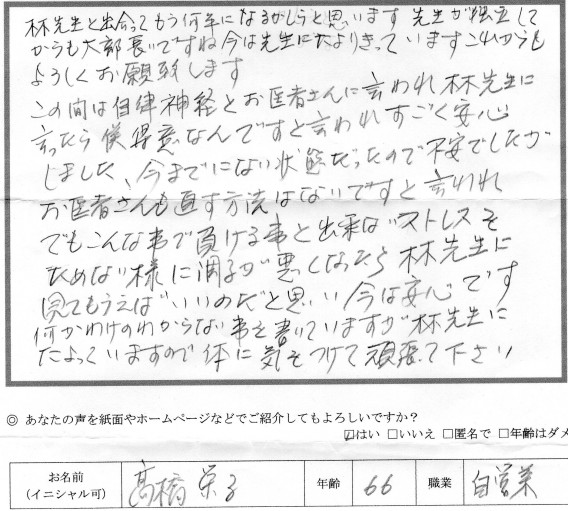 林先生と出会ってもう何年になるかしらと思います 先生が独立して
からも大部長いですね今は先生にたよりきっていますこれからも
よろしくお願致します
この間は自律神経とお医者さんに言われ林先生に
言ったら僕得意なんですと言われすごく安心
しました、今までにない状態だったので不安でしたが
お医者さんも直す方法はないですと言われ
でもこんな事で負ける事と出来ないストレスを
ためない様に調子が悪くなったら林先生に
見てもらえばいいのだと思い今は安心です
何かわけのわからない事を書いていますが林先生に
たよっていますので体に気をつけて頑張って下さい
◎ あなたの声を紙面やホームページなどでご紹介してもよろしいですか？
☑はい □いいえ □匿名で □年齢はダメ
お名前 高橋 栄子 年齢 66 職業 自営業
（イニシャル可）